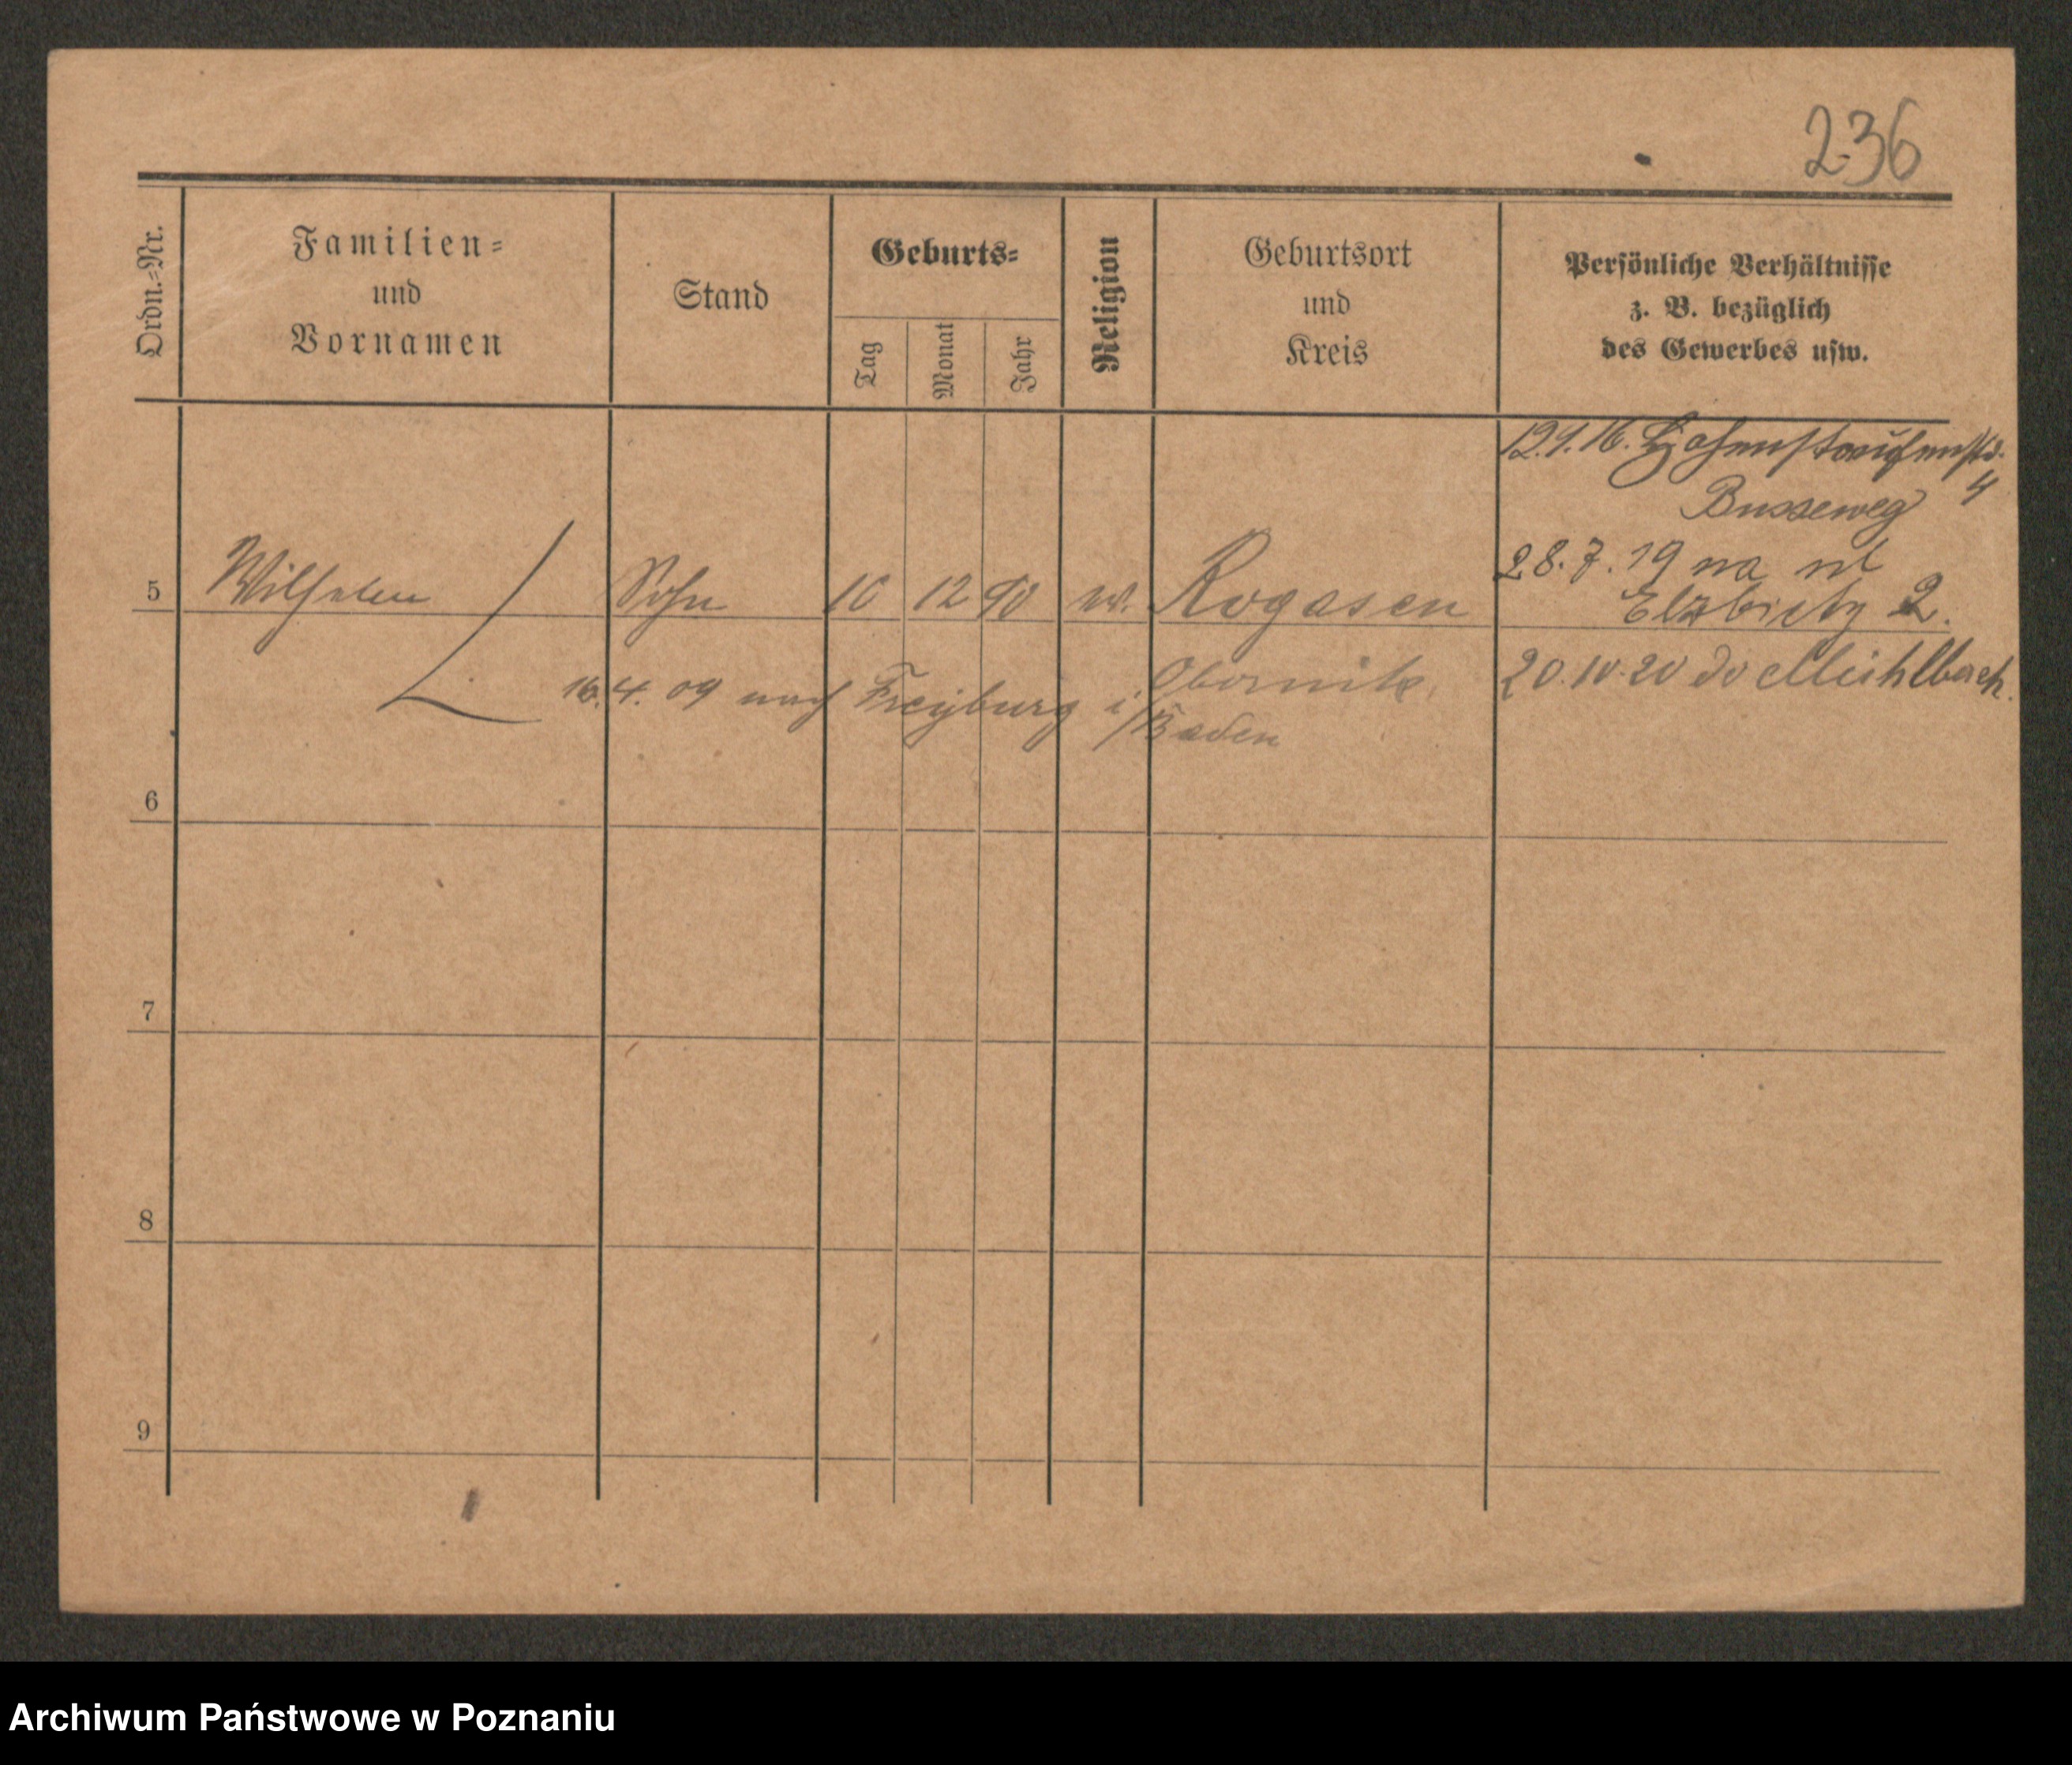 236
Ordn.-Nr.
Familien-
und
Vornamen
Stand
Geburts-
Tag
Monat
Jahr
Religion
Geburtsort
und
Kreis
Persönliche Verhältnisse
z. B. bezüglich
des Gewerbes usw.
12.1.16. Hohenstaufenstr.
4
Busseweg
28.7.19 na ul
Elzbiety 2.
5 Wilhelm Sohn 10 12 90 Rogasen
Obornik. 20.10.20 do Mühlbach.
16.4.09 nach Freyburg i/
Baden
6
7
8
9
Archiwum Państwowe w Poznaniu